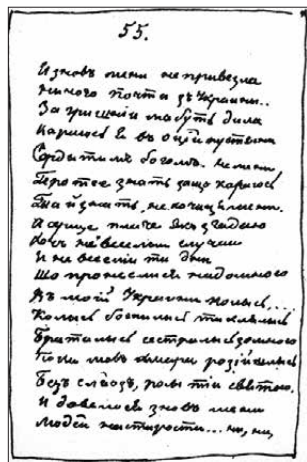 55.
И зновъ мени не привезла
Ничого почта зъ Украины..
За гришнии мабуть дила
Караюсь я въ оций пустини
Сердитимъ богомъ. не мени
Про тее знать защо караюсь
Та й знать не хочица мени.
А сурце плаче якъ згадаю
Хочь невесели случаи
И невесели ти дни
Що пронеслися надомною
Въ моий Украини колысь....
Колысь божились та клялись
Браталысь сестрылысь зомною
Поки мовъ хмара розийшлысь
Безъ слёозъ, росы тии святои.
И довелося зновъ мени
Людей на старости... ни, ни,